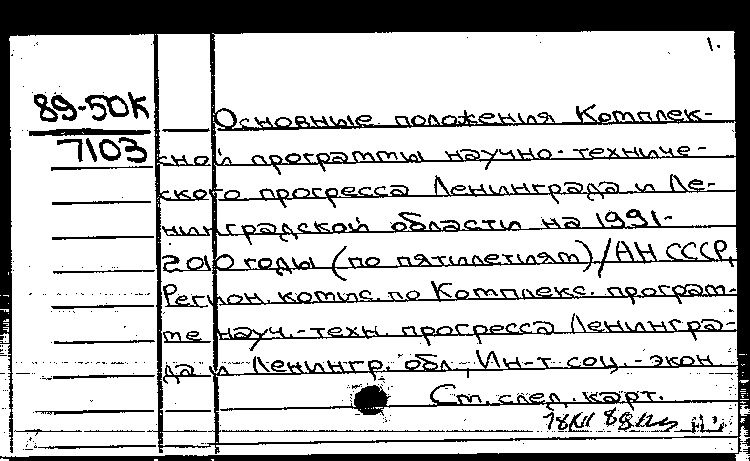 1.
89-50К
7103
Основные положения Комплек-
сной программы научно-техниче-
ского прогресса Ленинграда и Ле-
нинградской области на 1991-
2010 годы (по пятилетиям)/АН СССР,
Регион. комис. по Комплекс. програм-
ме науч.-техн. прогресса Ленингра-
да и Ленингр. обл., Ин-т соц.-экон
Ст. след. карт.